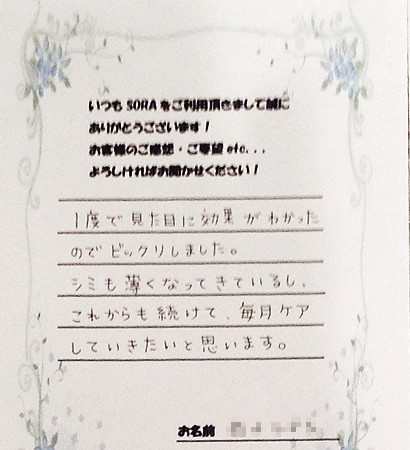 いつも SORA をご利用頂きまして誠に
ありがとうございます！
お客様のご感想・ご要望 etc...
よろしければお聞かせください！
1度で見た目に効果がわかった
のでビックリしました。
シミも薄くなってきているし、
これからも続けて、毎月ケア
していきたいと思います。
お名前